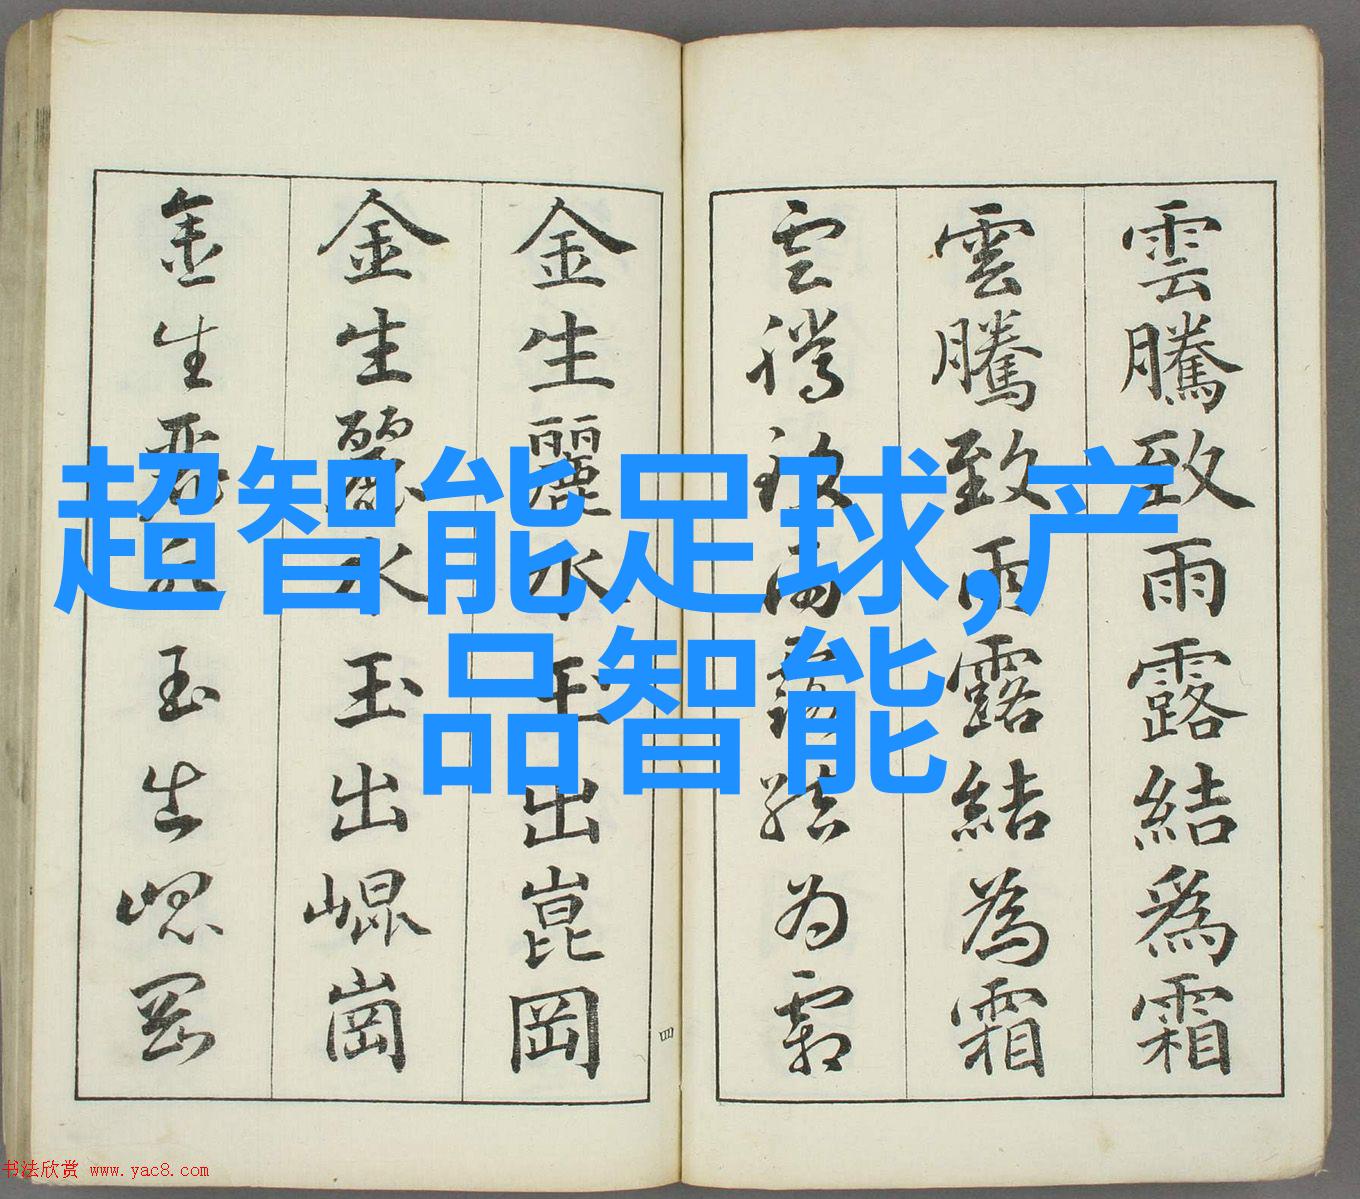 雲騰致雨露結爲霜
雲騰致雨露結為霜
雲騰致雨露結为霜
金生麗水玉出崑岡
金生麗水玉出崐崗
金生麗水玉出崐岡
四
超智能足球,产
品智能
书法欣赏 www.yac8.com